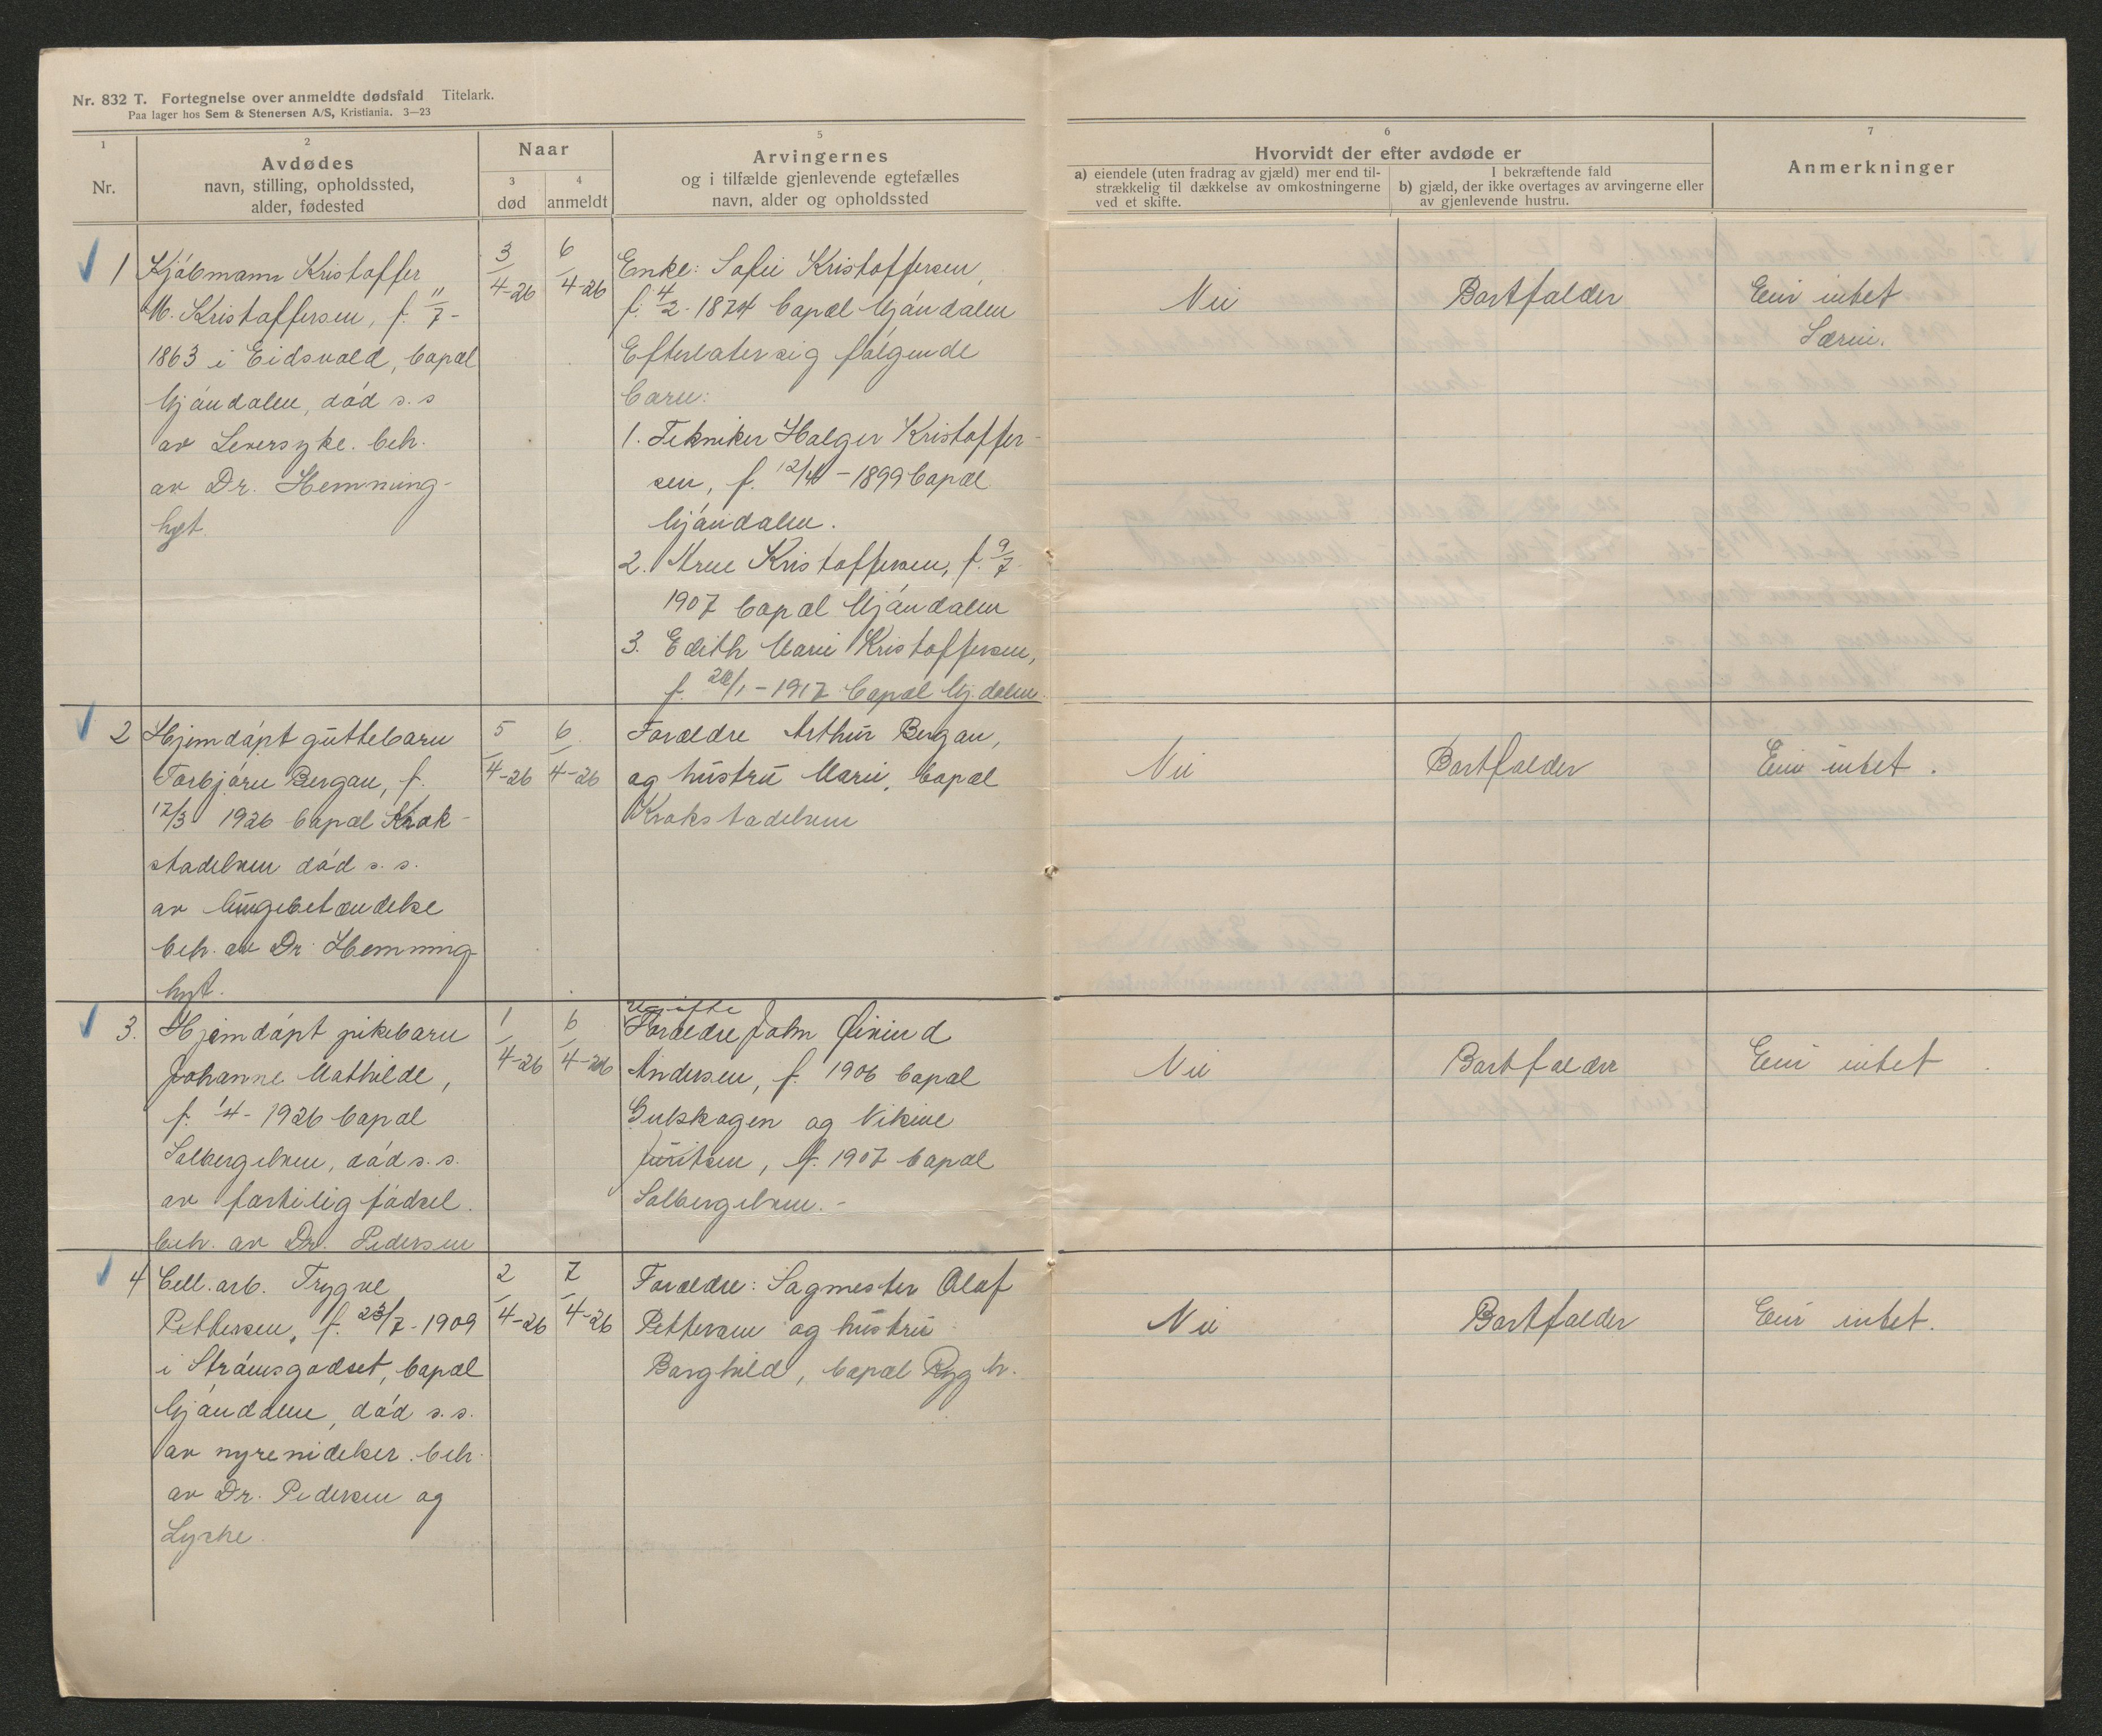 Nr. 832 T. Fortegnelse over anmeldte dødsfald Titelark.
Paa lager hos Sem & Stenersen A/S, Kristiania. 3—23
1
Nr.
2
Avdødes
navn, stilling, opholdssted,
alder, fødested
Naar
3
død
4
anmeldt
5
Arvingernes
og i tilfælde gjenlevende egtefælles
navn, alder og opholdssted
6
Hvorvidt der efter avdøde er
a) eiendele (uten fradrag av gjæld) mer end til-
strækkelig til dækkelse av omkostningerne
ved et skifte.
I bekræftende fald
b) gjæld, der ikke overtages av arvingerne eller
av gjenlevende hustru.
7
Anmerkninger
1
Kjøbmann Kristoffer
M. Kristoffersen, f. 11/7-
1863 i Eidsvold, bopæl
Mjøndalen, død s. s
av Leversyke. beh.
av Dr. Hemming-
hyt.
3/4-26
6/4-26
Enke: Sofie Kristoffersen,
f. 4/2-1874 bopæl Mjøndalen
Efterlater sig følgende
barn:
1. Tekniker Holger Kristoffer-
sen, f. - 1899 bopæl
Mjøndalen.
2. Arne Kristoffersen, f. 9/7
1907 bopæl Mjøndalen
3. Edith Marie Kristoffersen,
f. - 1917 bopæl Mj.dalen.
Nei
Bortfalder
Eier intet
Særeie.
2
Hjemdøpt guttebarn
Torbjørn Bergan, f.
12/3 1926 bopæl Krok-
stadelven død s. s.
av lungebetændelse
beh. av Dr. Hemming-
hyt.
5/4-26
6/4-26
Forældre Arthur Bergan,
og hustru Marie, bopæl
Krokstadelven
Nei
Bortfalder
Eier intet.
3.
Hjemdøpt pikebarn
Johanne Mathilde,
f. 1/4-1926 bopæl
Solbergelven, død s. s.
av fortilig fødsel.
beh. av Dr. Pedersen
1/4-26
6/4-26
Ugifte
Forældre John Øivind
Andersen, f. 1906 bopæl
Gulskogen og Vikine
Juritsen, f. 1907 bopæl
Solbergelven.-
Nei
Bortfalder
Eier intet
4
Cell. arb. Trygve
Pettersen, f. 23/7-1909
i Strømsgodset, bopæl
Mjøndalen, død s. s.
av nyrenidelser. beh.
av Dr. Pedersen og
2/4-26
7/4-26
Forældre: Sagmester Olaf
Pettersen og hustru
Borghild, bopæl Rygh.
Nei
Bortfalder
Eier intet.